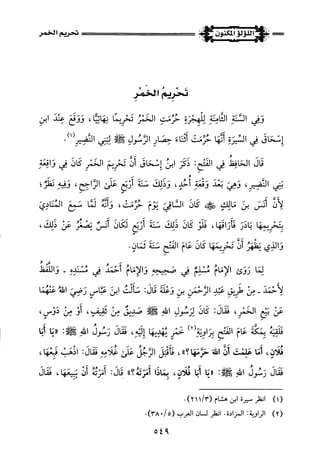 اللؤلؤ المكنون
تحريم الخمر
تَحْرِيمُ الخَمْرِ
وَفِي السَّنَةِ الثَّامِنَةِ لِلْهِجْرَةِ حُرِّمَتِ الخَمْرُ تَحْرِيمًا نِهَائِيًّا، وَوَقَعَ عِنْدَ ابنِ
إِسْحَاقَ فِي السِّيرَةِ أَنَّهَا حُرِّمَتْ أَثْنَاءَ حِصَارِ الرَّسُولِ ﷺ لِبَنِي النَّضِيرِ (١).
قَالَ الحَافِظُ فِي الفَتْحِ: ذَكَرَ ابنُ إِسْحَاقَ أَنَّ تَحْرِيمَ الخَمْرِ كَانَ فِي وَاقِعَةِ
بَنِي النَّضِيرِ، وَهِيَ بَعْدَ وَقْعَةِ أُحُدٍ، وَذَلِكَ سَنَةَ أَرْبَعٍ عَلَى الرَّاجِحِ، وَفِيهِ نَظَرٌ؛
لِأَنَّ أَنَسَ بنَ مَالِكٍ ﷺ كَانَ السَّاقِيَ يَوْمَ حُرِّمَتْ، وَأَنَّهُ لَمَّا سَمِعَ المُنَادِيَ
بِتَحْرِيمِهَا بَادَرَ فَأَرَاقَهَا، فَلَوْ كَانَ ذَلِكَ سَنَةَ أَرْبَعٍ لَكَانَ أَنَسٌ يَصْغُرُ عَنْ ذَلِكَ،
وَالذِي يَظْهَرُ أَنَّ تَحْرِيمَهَا كَانَ عَامَ الفَتْحِ سَنَةَ ثَمَانٍ.
لِمَا رَوَى الإِمَامُ مُسْلِمٌ فِي صَحِيحِهِ وَالإِمَامُ أَحْمَدُ فِي مُسْنَدِهِ - وَاللَّفْظُ
لِأَحْمَدَ - مِنْ طَرِيقِ عَبْدِ الرَّحْمَنِ بنِ وَعْلَةَ قَالَ: سَأَلْتُ ابنَ عَبَّاسٍ رَضِيَ اللهُ عَنْهُمَا
عَنْ بَيْعِ الخَمْرِ، فَقَالَ: كَانَ لِرَسُولِ اللهِ ﷺ صَدِيقٌ مِنْ ثَقِيفٍ، أَوْ مِنْ دَوْسٍ،
فَلَقِيَهُ بِمَكَّةَ عَامَ الفَتْحِ بِرَاوِيَةِ (٢) خَمْرٍ يُهْدِيهَا إِلَيْهِ، فَقَالَ رَسُولُ اللهِ ﷺ: «يَا أَبَا
فُلَانٍ، أَمَا عَلِمْتَ أَنَّ اللهَ حَرَّمَهَا؟»، فَأَقْبَلَ الرَّجُلُ عَلَى غُلَامِهِ فَقَالَ: اذْهَبْ فَبِعْهَا،
فَقَالَ رَسُولُ اللهِ ﷺ: «يَا أَبَا فُلَانٍ، بِمَاذَا أَمَرْتَهُ؟» قَالَ: أَمَرْتُهُ أَنْ يَبِيعَهَا، فَقَالَ
(١) انظر سيرة ابن هشام (٢١١/٣).
(٢) الراوية: المزادة. انظر لسان العرب (٣٨٠/٥).
٥٤٩